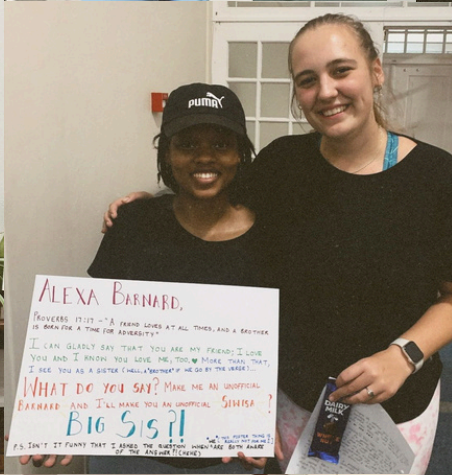 PUMA
ALEXA BARNARD,
PROVERBS 17:17 - "A FRIEND LOVES AT ALL TIMES, AND A BROTHER
IS BORN FOR A TIME FOR ADVERSITY"
I CAN GLADLY SAY THAT YOU ARE MY FRIEND; I LOVE
YOU AND I KNOW YOU LOVE ME, TOO. ♥ MORE THAN THAT,
I SEE YOU AS A SISTER (WELL, A "BROTHER" IF WE GO BY THE VERSE)...
WHAT DO YOU SAY? MAKE ME AN UNOFFICIAL
BARNARD AND I'LL MAKE YOU AN UNOFFICIAL SIWISA?
BIG SIS?!
POSTER THING IS
REALLY NOT
P.S. ISN'T IT FUNNY THAT I ASKED THE QUESTION WHEN WE ARE BOTH AWARE
OF THE ANSWER?! (HEHE)
DAIRY
MILK